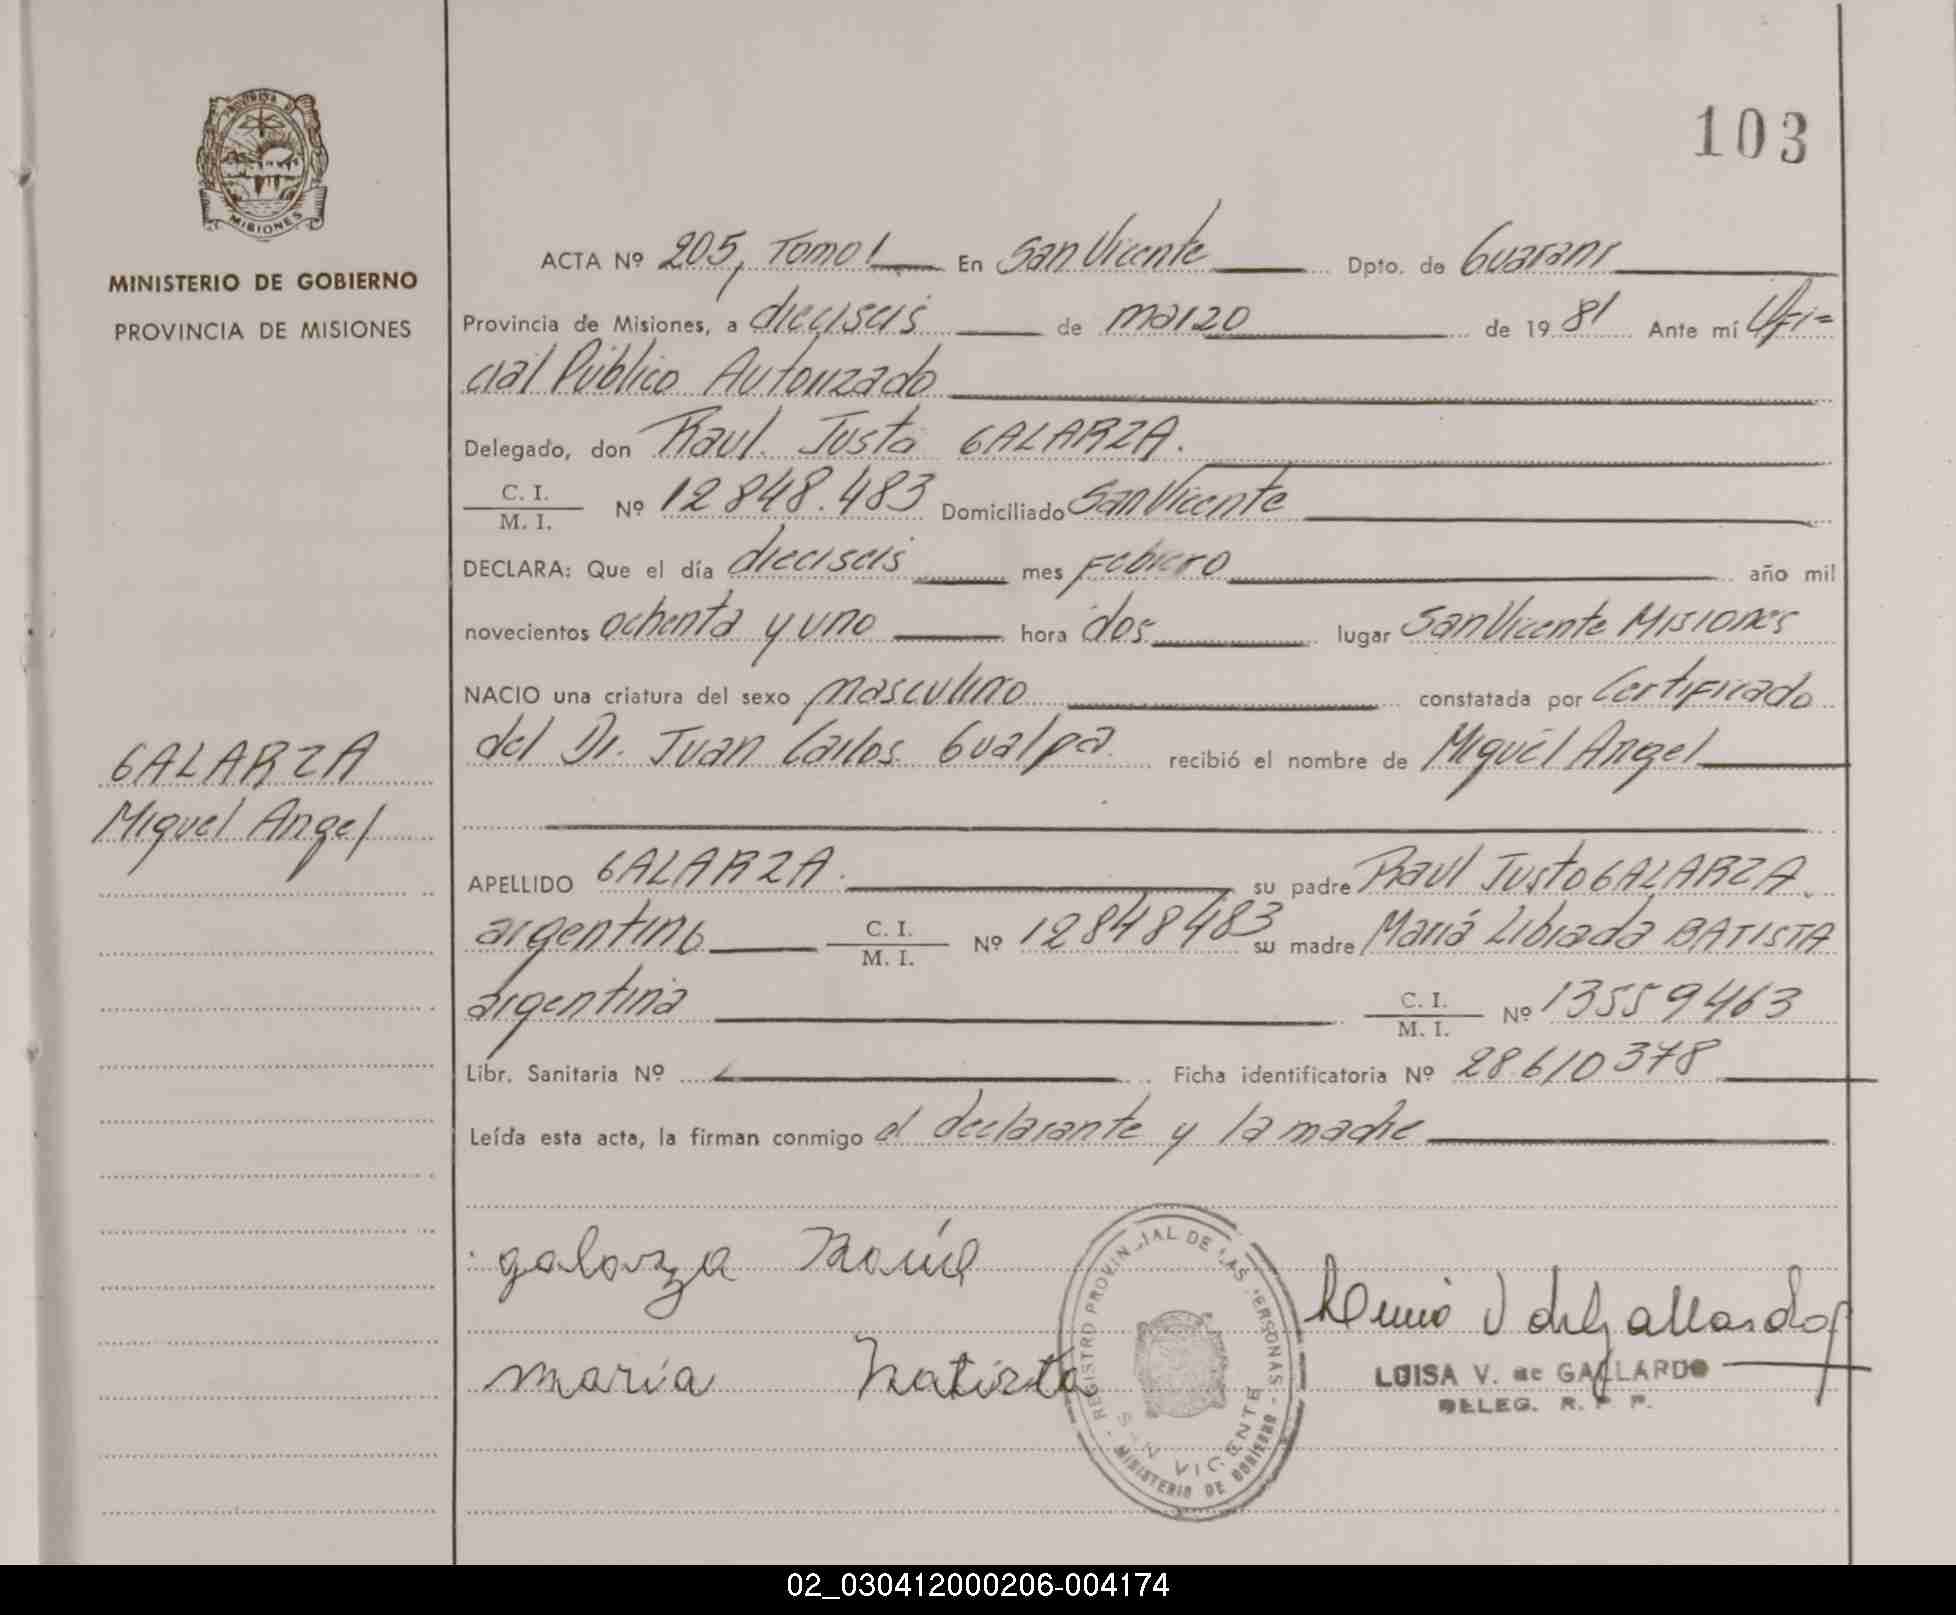 103
PROVINCIA DE
MISIONES
MINISTERIO DE GOBIERNO
PROVINCIA DE MISIONES
GALARZA
Miguel Angel
ACTA Nº 205, Tomo I En San Vicente Dpto. de Guarani
Provincia de Misiones, a dieciseis de marzo de 19 81 Ante mí Ofi=
cial Público Autorizado
Delegado, don Raul Justo GALARZA.
C. I.
M. I. Nº 12848.483 Domiciliado San Vicente
DECLARA: Que el día dieciseis mes Febrero año mil
novecientos ochenta y uno hora dos lugar San Vicente Misiones
NACIO una criatura del sexo masculino constatada por Certificado
del Dr. Juan Carlos Gualpa recibió el nombre de Miguel Angel
APELLIDO GALARZA. su padre Raul Justo GALARZA.
argentino C. I.
M. I. Nº 12848483 su madre María Librada BATISTA
argentina C. I.
M. I. Nº 13559463
Libr. Sanitaria Nº Ficha identificatoria Nº 28.610378
Leída esta acta, la firman conmigo el declarante y la madre
galarza Raúl
maria Batista
REGISTRO PROVINCIAL DE LAS PERSONAS
SAN VICENTE
MINISTERIO DE GOBIERNO
LUISA V. de GALLARDO
DELEG. R. P. P.
02_030412000206-004174